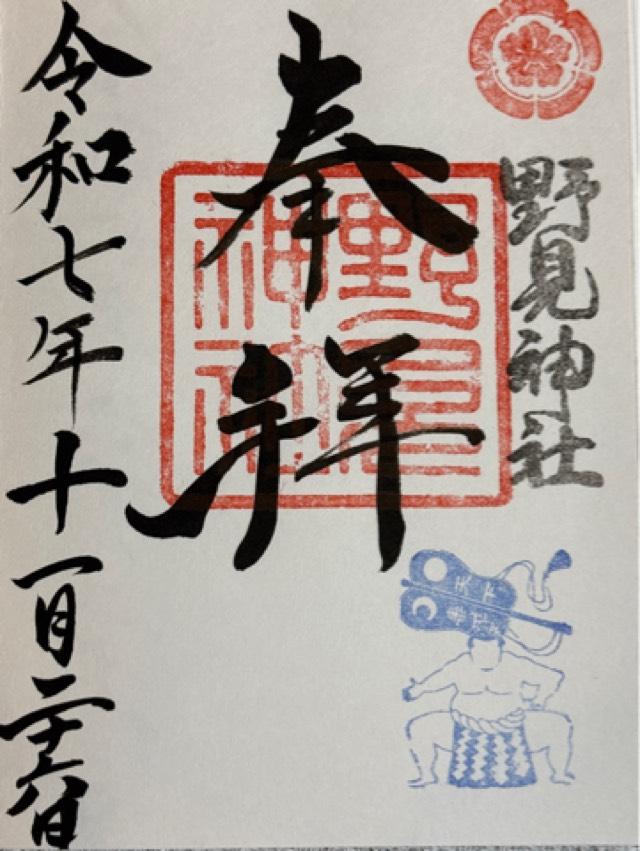 野見神社
奉拝
野見
神社
令和七年十一月二十六日
天下
泰平